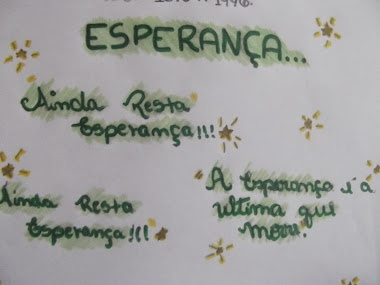 1996.
ESPERANÇA...
Ainda Resta
Esperança!!!
Ainda Resta
Esperança!!!
A Esperança é a
ultima que
morre.